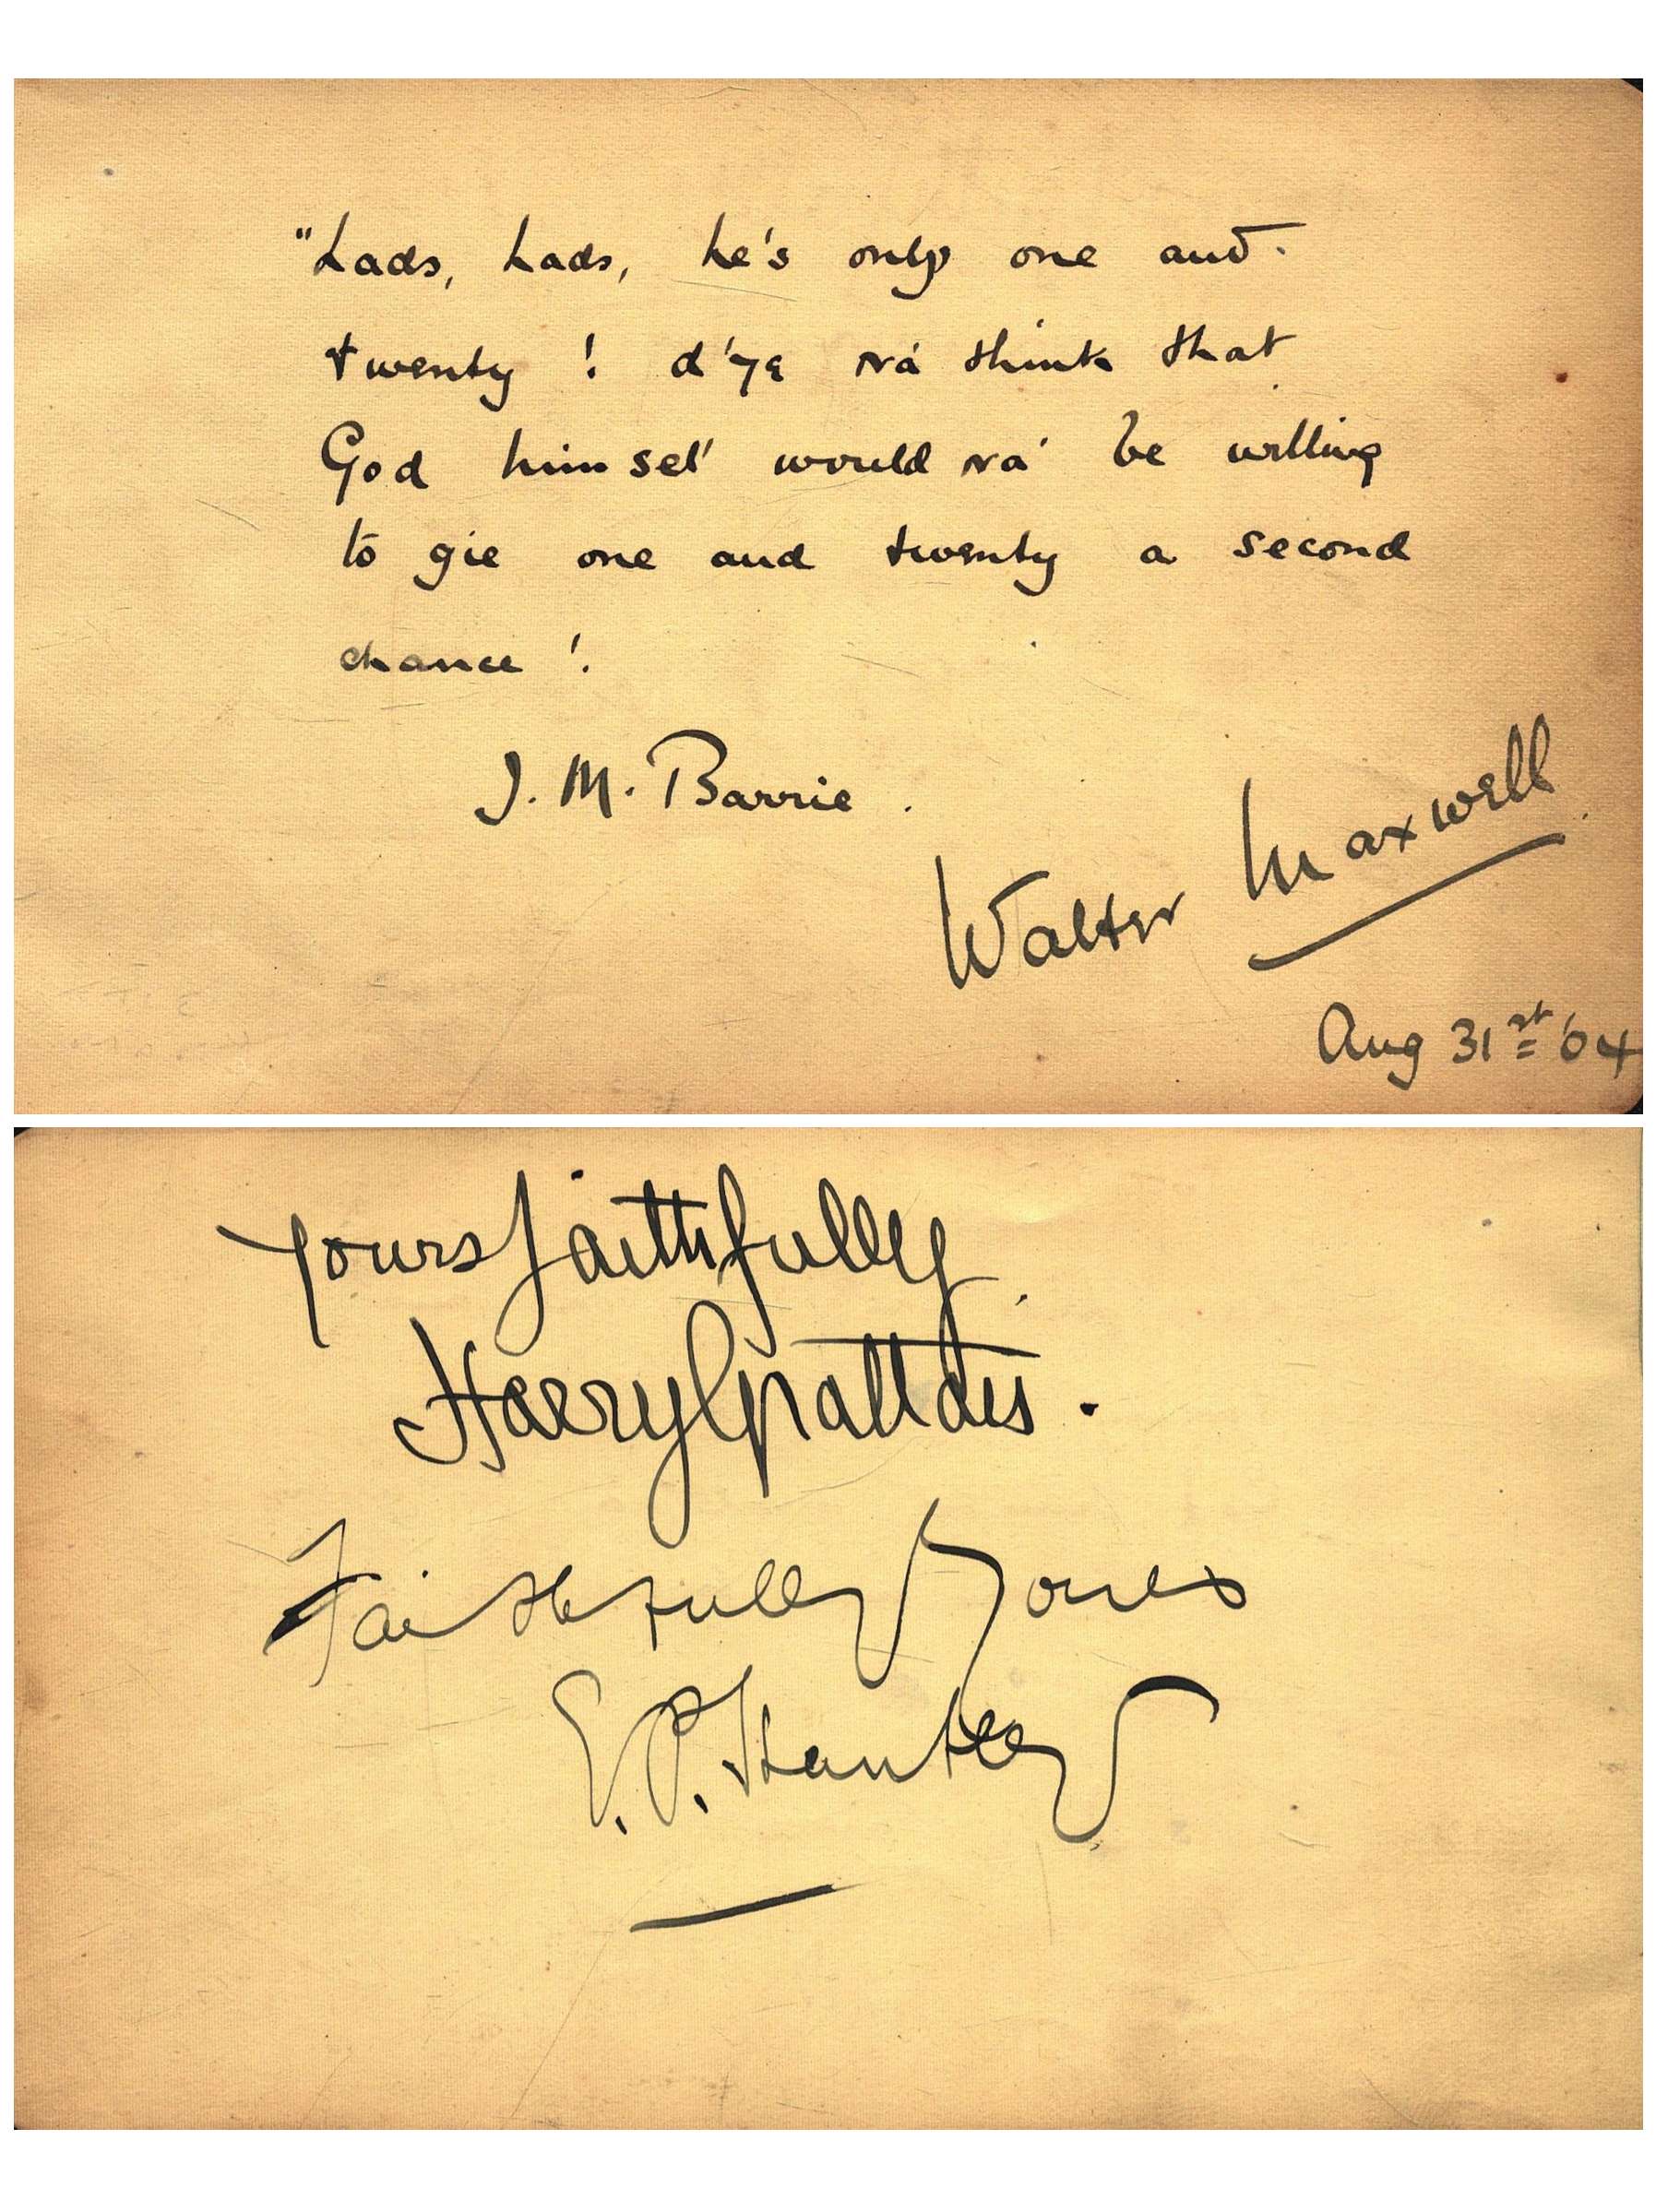 "Lads, Lads, he's only one and-
twenty ! d'ye na' think that
God himsel' would na' be willing
to gie one and twenty a second
chance !
J. M. Barrie.
Walter Maxwell
Aug 31st '04
Yours faithfully
Harry
Faithfully Yours
E. P.